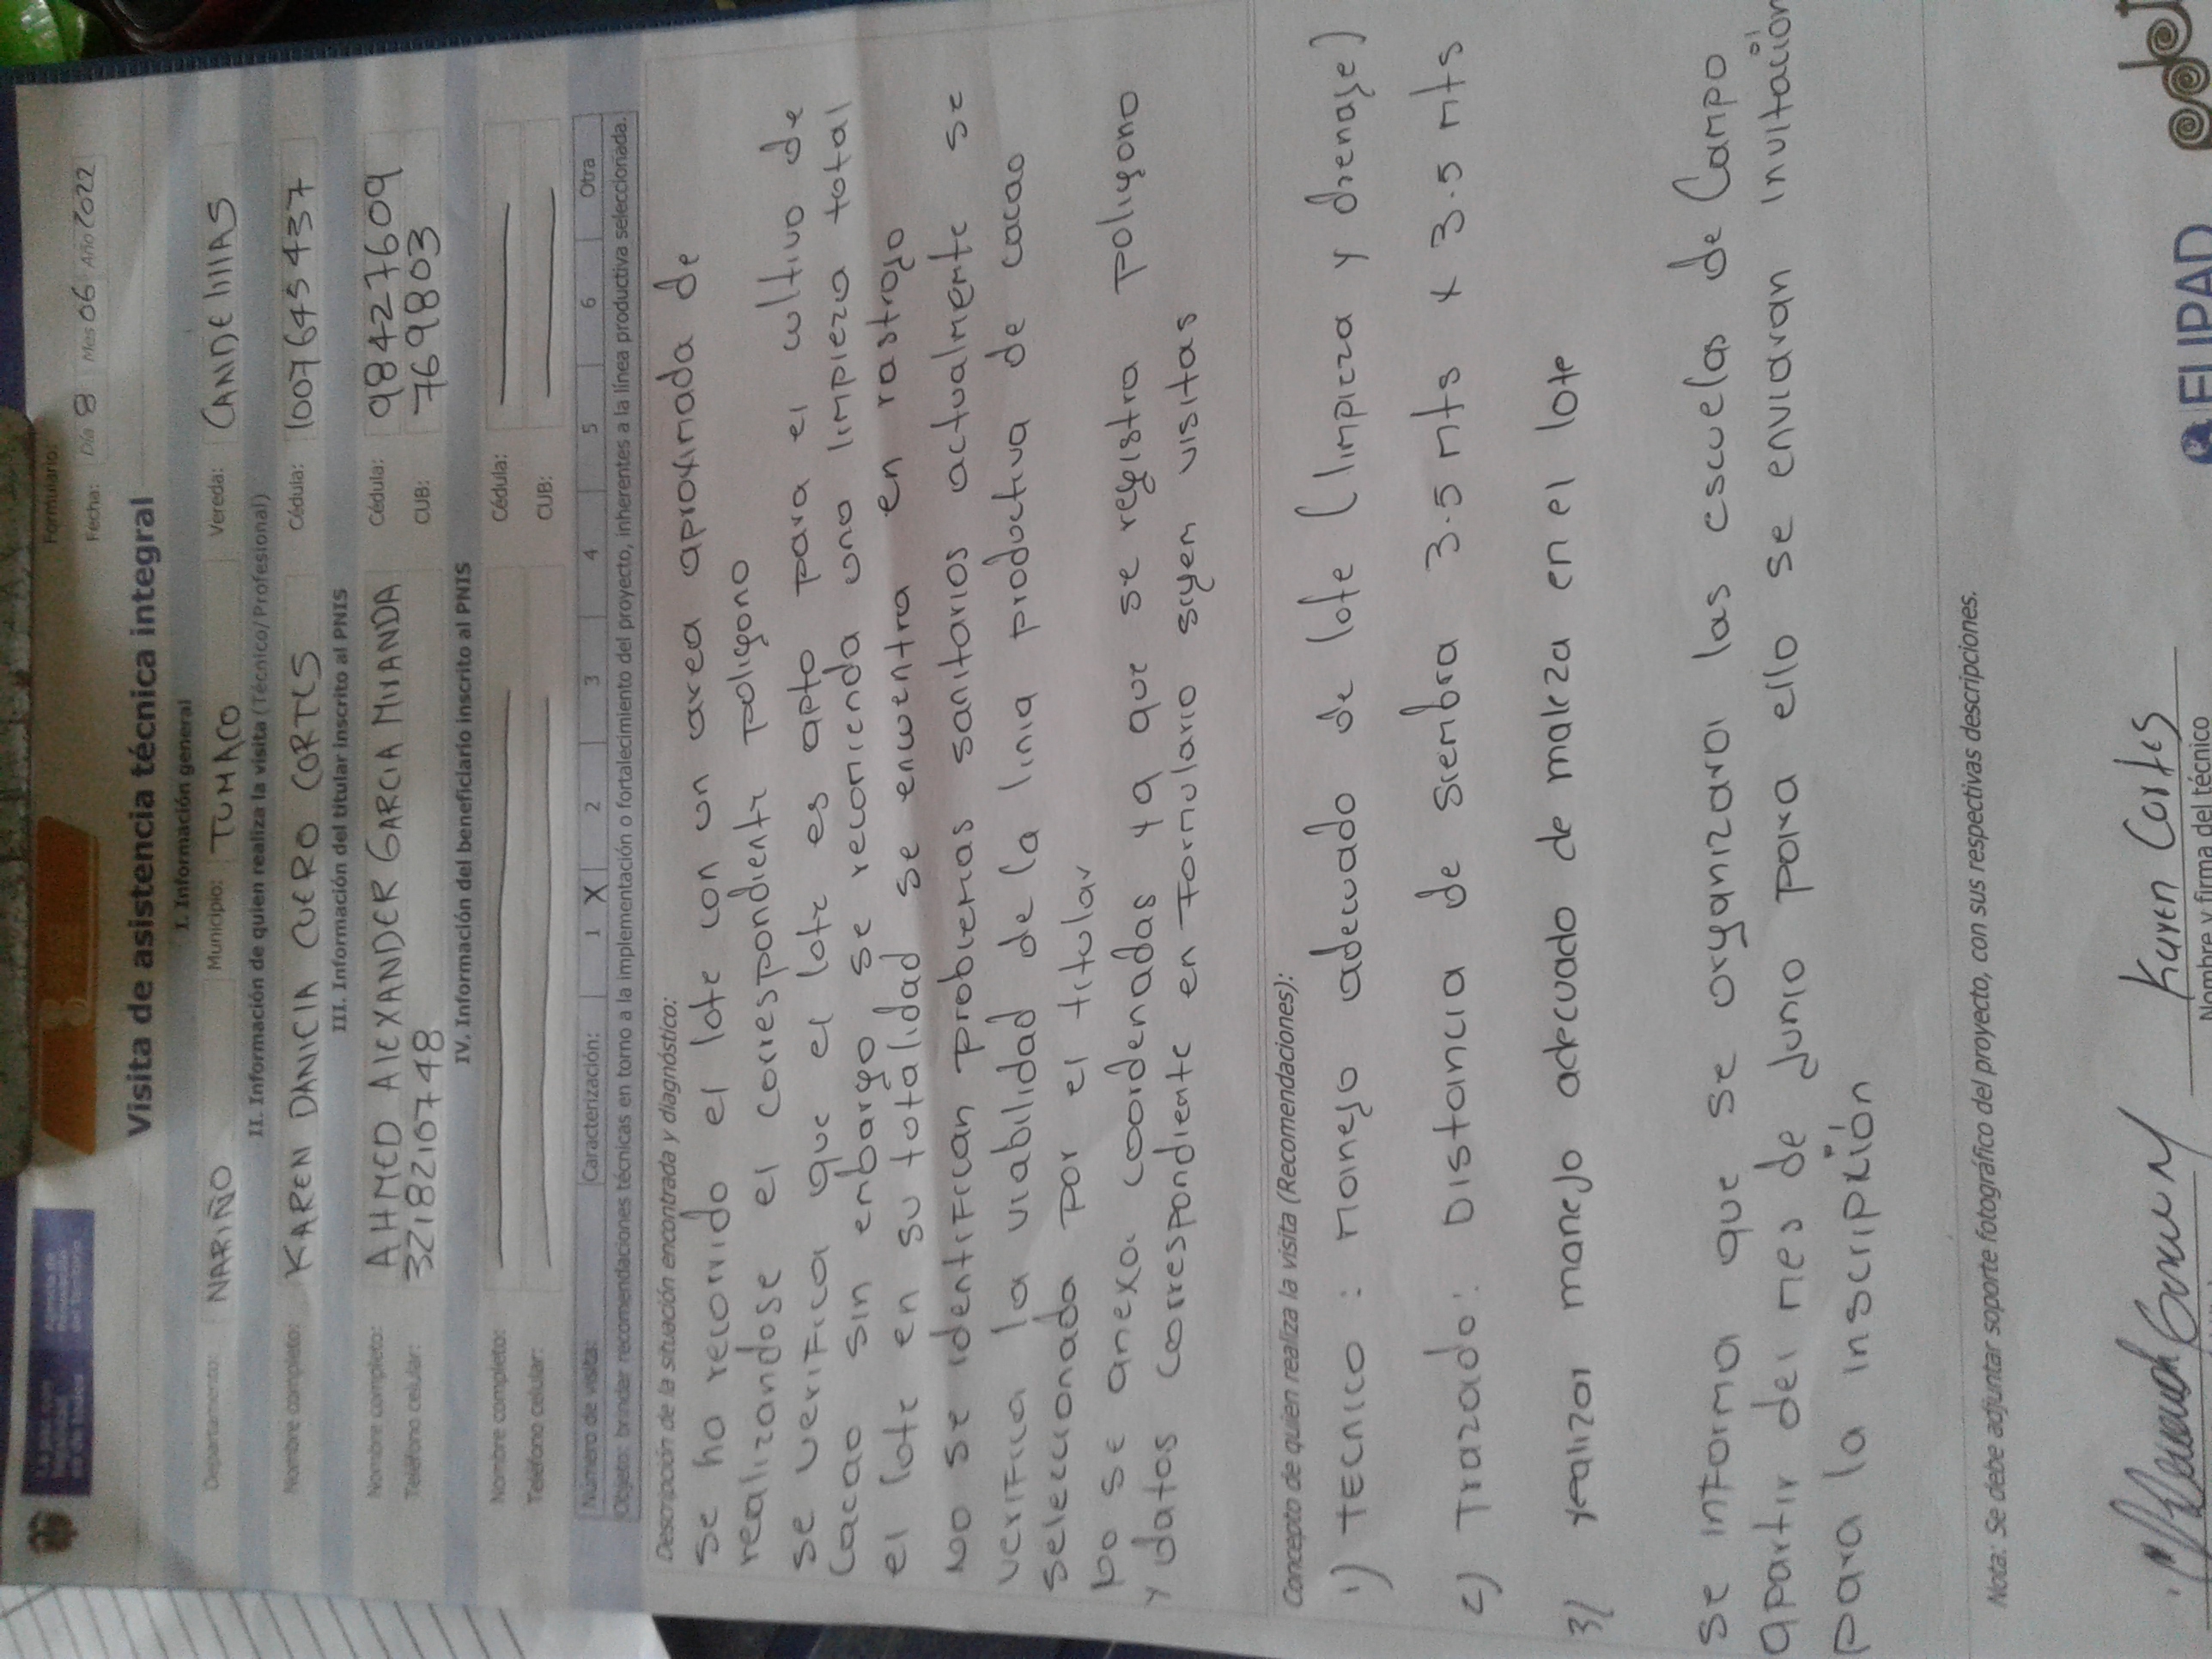 Formulario:
Fecha: Día 8 Mes 06 Año 2022
Visita de asistencia técnica integral
I. Información general
Departamento: NARIÑO Municipio: TUMACO Vereda: CANDELILLAS
II. Información de quien realiza la visita (Técnico/ Profesional)
Nombre completo: KAREN DANICIA CUERO CORTES Cédula: 1007645437
III. Información del titular inscrito al PNIS
Nombre completo: AHMED ALEXANDER GARCIA MIRANDA Cédula: 98427609
Teléfono celular: 3218210748 CUB: 769803
IV. Información del beneficiario inscrito al PNIS
Nombre completo: Cédula:
Teléfono celular: CUB:
Número de visita: Caracterización: 1 X 2 3 4 5 6 Otra
Objeto: brindar recomendaciones técnicas en torno a la implementación o fortalecimiento del proyecto, inherentes a la línea productiva seleccionada.
Descripción de la situación encontrada y diagnóstico:
se ha recorrido el lote con un area aproximada de
realizandose el correspondiente poligono
se verifica que el lote es apto para el cultivo de
cacao sin enbargo se recomienda una limpieza total
el lote en su totalidad se encuentra en rastrojo
No se identifican problemas sanitarios actualmente se
verifica la viabilidad de la linia productiva de cacao
seleccionada por el titular
No se anexa coordenadas ya que se registra poligono
y datos correspondiente en formulario syen visitas
Concepto de quien realiza la visita (Recomendaciones):
1) TECNICO: manejo adecuado de lote (limpieza y drenaje)
2) Trazado: Distancia de siembra 3.5 mts x 3.5 mts
3) realizar manejo adecuado de maleza en el lote
se informa que se organizara las escuelas de Campo
apartir del mes de Junio para ello se enviaran invitación
para la inscripción
Nota: Se debe adjuntar soporte fotográfico del proyecto, con sus respectivas descripciones.
Karen Cortes
Nombre y firma del técnico
ELIPAD